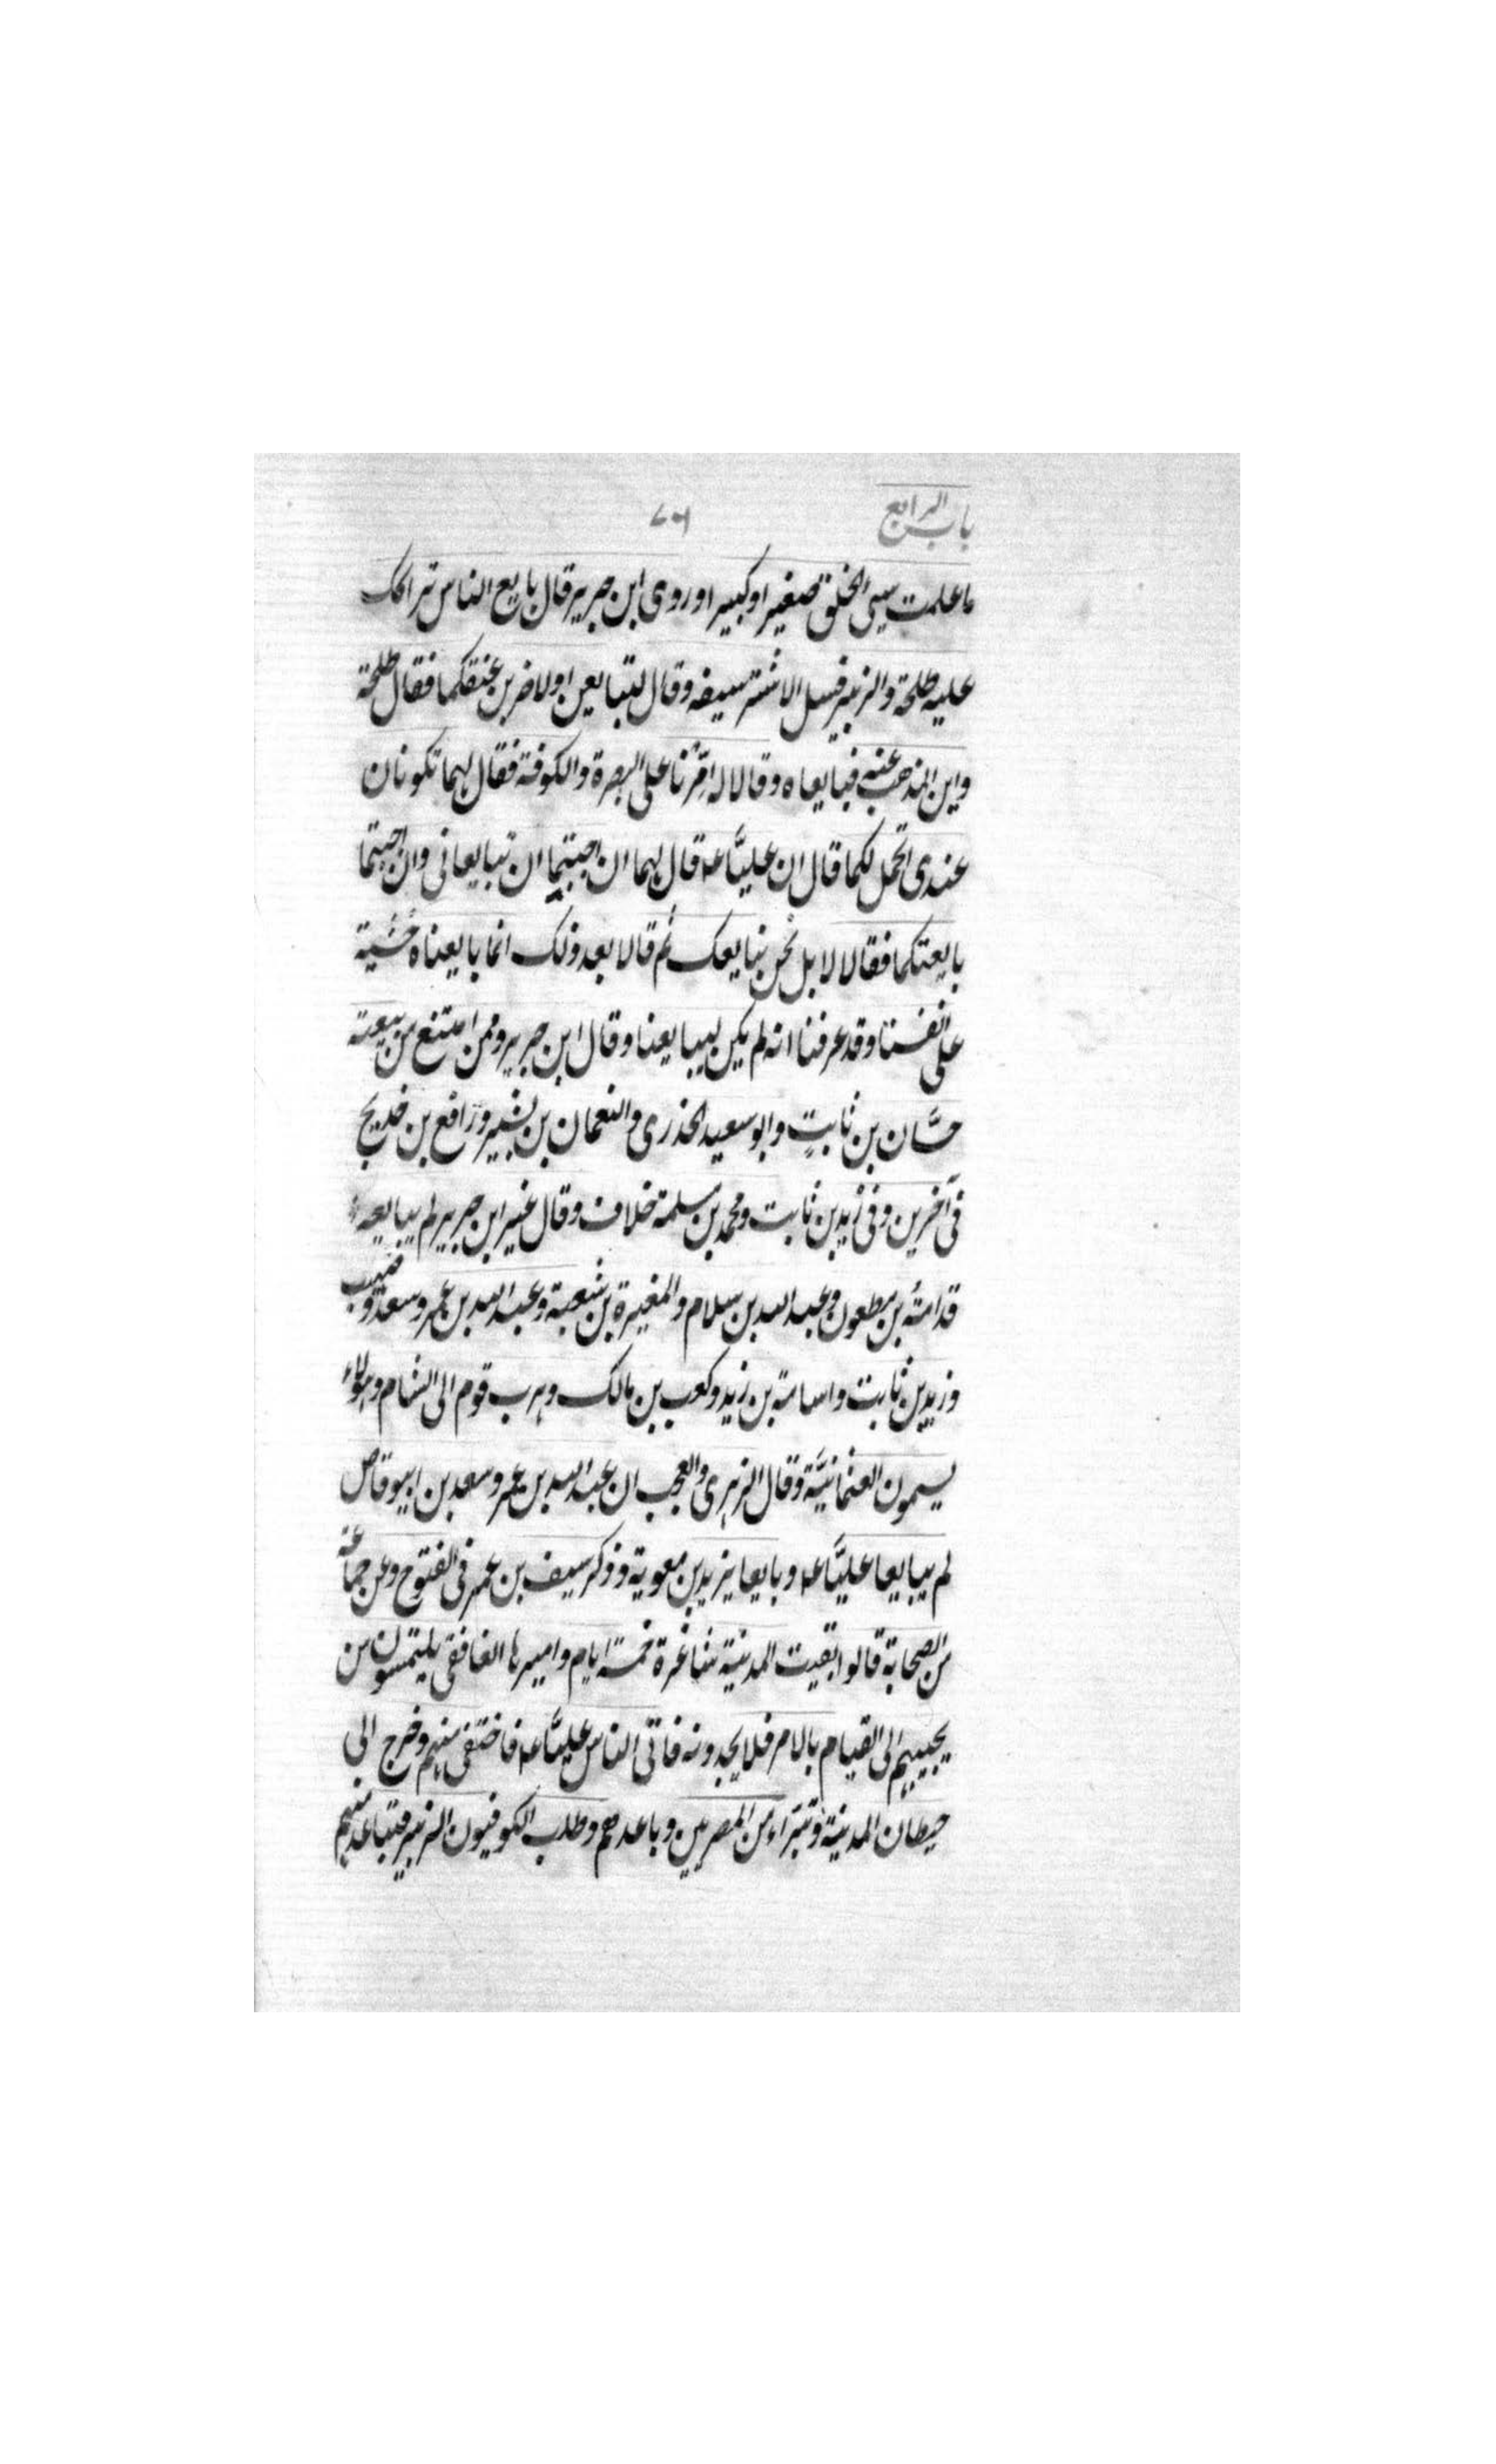 باب الرابع
ما علمت سيئ الخلق صغيرا وكبيرا وروى ابن جرير قال بايع الناس
عليه طلحة والزبير فسل الاشتر سيفه وقال لتبايعن اولاضربن عنقكما فقال طلحة
واين المذهب عنه فبايعاه وقالا له اقرنا على البصرة والكوفة فقال لهما تكونان
عندى اتحمل لكما قال ان عليًّا عه قال لهما ان احببتما ان تبايعانى وان احببتما
بايعتكما فقالا لا بل نحن نبايعك ثم قالا بعد ذلك انما بايعناه خشية
على انفسنا وقد عرفنا انه لم يكن ليبايعنا وقال ابن جرير وممن امتنع من بيعته
حسَّان بن ثابتٍ وابو سعيد الخدرى والنعمان بن بشير ورافع بن خديج
فى آخرين وفى زيد بن ثابت ومحمد بن مسلمة خلاف وقال غير ابن جرير لم يبايعه
قدامة بن مظعون وعبد الله بن سلام والمغيرة بن شعبة وعبد الله بن عمر وسعد وصهيب
وزيد بن ثابت واسامة بن زيد وكعب بن مالك وهرب قوم الى الشام وهؤلاء
يسمون العثمانيَّة وقال الزهرى والعجب ان عبد الله بن عمر وسعد بن ابيوقاص
لم يبايعا عليًّا عه وبايعا يزيد بن معوية وذكر سيف بن عمر فى الفتوح وعن جماعة
من الصحابة قالوا بقيت المدينة شاغرة خمسة ايام واميرها الغافقى يلتمسون من
يجيبهم الى القيام بالامر فلا يجدونه فاتى الناس عليًّا عه فاختفى منهم وخرج الى
حيطان المدينة وتبراء من المصريين وباعدهم وطلب الكوفيون الزبير فتباعد منهم